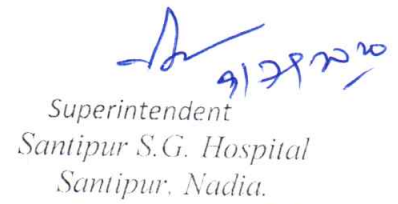 Superintendent
Santipur S.G. Hospital
Santipur, Nadia.